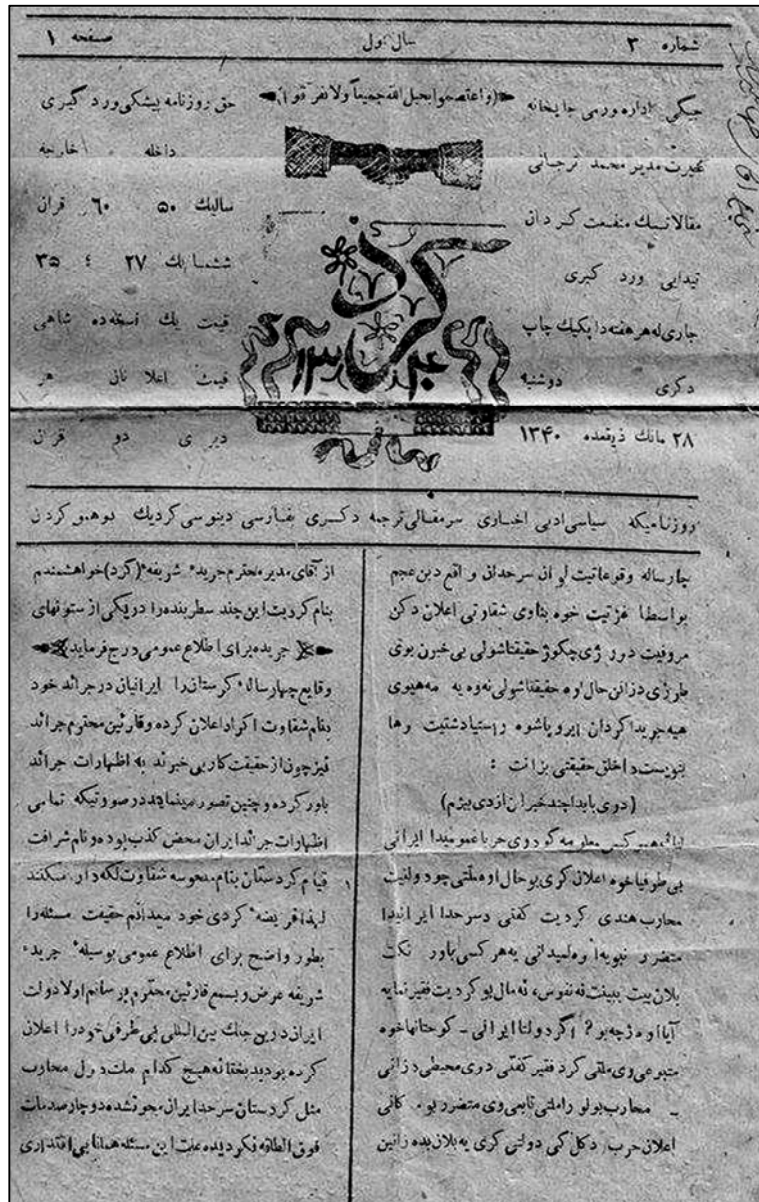 شماره ۳ سال اول صفحه ۱
(واعتصموا بحبل الله جمیعاً ولا تفرقوا)
جیکی اداره ورمی چاپخانه
غیرت مدیر محمد ترجانی
مقالاتیک منفعت کردان
تیدابی ورد کیری
جاری له هر هفته دا یکیك چاپ
دکری دوشنبه
۲۸ مانك ذیقعده ۱۳۴۰
کرد
۱۳۴۰
حق روزنامه پیشکی ورد کیری
داخله خارجه
سالیك ۵۰ ۶۰ قران
ششمانك ۲۷ ؛ ۳۵
قیمت یك نسخه ده شاهی
قیمت اعلانان هر
دیری دو قران
روزنامیکه سیاسی ادبی اخباری سرمقالی ترجمه دکری بفارسی دینوسی کردیك بوهمو کردن
چار ساله وقوعاتیت لوان سرحدان واقع دبن عجم
بواسطا غزتیت خوه بناوی شقاوتی اعلان دکن
مروفیت دور ژی چکوژ حقیقتا شولی بی خبرن بوتی
طرزی دزانن حال اوه حقیقتا شولی نه‌وه یه مه هیوی
هیه جریدا کردان ایرو پاشوه راستیا دشتیت رها
بنویست دا خلق حقیقتی بزانت :
(دوی بابدا چند خبران ازدی بیژم)
کس معلومه کو دوی حربا عمومیدا ایرانی
بی طرفیا خوه اعلان کری بو حال اوه ملتی چو دولتیت
محارب هندی کردیت کفتی دسرحدا ایرانیدا
متضرر نبویه اوه لمیدانی یه هر کسی باور نکت
بلان بیت ببینت نه نفوس، نه مال بو کردیت فقیر نمایه
آیا اوه ژچه بو ؟ اگر دولتا ایرانی - کو حتا نها خوه
متبوعی وی ملتی کرد فقیر کفتی دوی محیطی دزانی
- محارب بو لو را ملتی تابعی وی متضرر بو. کانی
اعلان حرب. دکل کی دولتی کری یه بلان بده زانین
از آقای مدیر محترم جریدهٔ شریفهٔ (کرد) خواهشمندم
بنام کردیت این چند سطر بنده را در یکی از ستونهای
جریده برای اطلاع عمومی درج فرماید
وقایع چهار سالهٔ کرستان را ایرانیان در جرائد خود
بنام شقاوت اکراد اعلان کرده وقارئین محترم جرائد
نیز چون از حقیقت کار بی خبرند به اظهارات جرائد
باور کرده و چنین تصور مینمایند در صورتیکه تمامی
اظهارات جرائد ایران محض کذب بوده و نام شرافت
قیام کردستان بنام منحوسه شقاوت لکه دار میکنند
لهذا فریضهٔ کردی خود میدانم حقیقت مسئله را
بطور واضح برای اطلاع عمومی بوسیلهٔ جریدهٔ
شریفه عرض و بسمع قارئین محترم برسانم اولا دولت
ایران در بن جنك بین المللی بی طرفی خود را اعلان
کرده بودید بختانه هیچ کدام ملت دول محارب
مثل کردستان سرحد ایران محو نشده دو چار صدمات
فوق الطاقه نکردیده علت این مسئله همانا بی اقتداری